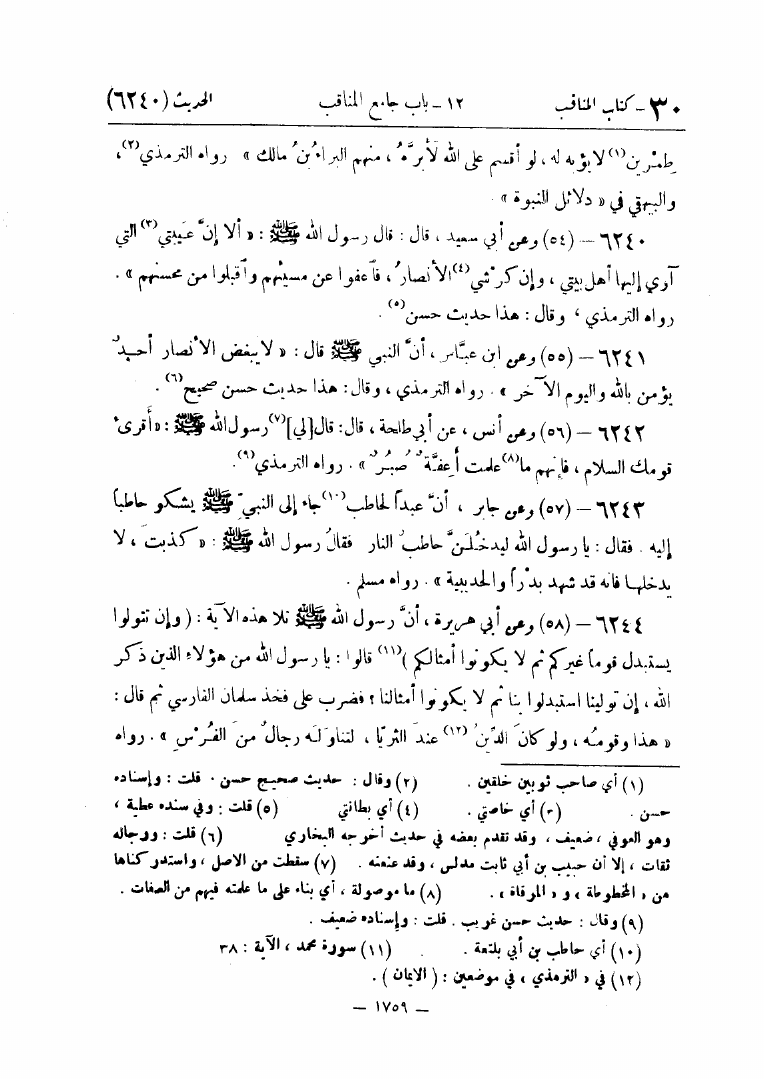 ٣٠ - كتاب المناقب ١٢ - باب جامع المناقب الحديث (٦٢٤٠)
طِمْرين(١) لا يؤبه له ، لو أقسم على الله لأبرَّهُ ، منهم البراءُ بنُ مالك » رواه الترمذي(٢)،
والبيهقي في « دلائل النبوة » .
٦٢٤٠ – (٥٤) وعن أبي سعيد ، قال : قال رسول الله ﷺ : « ألا إنَّ عَيبتي(٣) التي
آوي إليها أهل بيتي ، وإن كَرْشي(٤) الأنصارُ ، فاعفوا عن مسيئهم واقبلوا من محسنهم » .
رواه الترمذي ، وقال : هذا حديث حسن(٥) .
٦٢٤١ – (٥٥) وعن ابن عبَّاس ، أنَّ النبي ﷺ قال : « لا يبغض الأنصار أحدٌ
يؤمن بالله واليوم الآخر » . رواه الترمذي ، وقال : هذا حديث حسن صحيح(٦) .
٦٢٤٢ – (٥٦) وعن أنس ، عن أبي طلحة ، قال : قال [لي](٧) رسول الله ﷺ : « أقرىء
قومك السلام ، فإنهم ما(٨) علمت أعفَّةٌ صُبُرٌ » . رواه الترمذي(٩).
٦٢٤٣ – (٥٧) وعن جابر ، أنَّ عبداً لحاطب(١٠) جاء إلى النبيّ ﷺ يشكو حاطباً
إليه . فقال : يا رسول الله ليدخُلَنَّ حاطبٌ النار فقال رسول الله ﷺ : « كذبتَ ، لا
يدخلها فانه قد شهد بدْراً والحديبية » . رواه مسلم .
٦٢٤٤ – (٥٨) وعن أبي هريرة ، أنَّ رسول الله ﷺ تلا هذه الآية : ( وإن تتولوا
يستبدل قوماً غيركم ثم لا يكونوا أمثالكم )(١١) قالوا : يا رسول الله من هؤلاء الذين ذكر
الله ، إن تولينا استبدلوا بنا ثم لا يكونوا أمثالنا ؟ فضرب على فخذ سلمان الفارسي ثم قال :
« هذا وقومُه ، ولو كانَ الدِّينُ(١٢) عندَ الثريّا ، لتناوَلَه رجالٌ منَ الفُرْسِ » . رواه
(١) أي صاحب ثوبين خلقين . (٢) وقال : حديث صحيح حسن . قلت : وإسناده
حسن . (٣) أي خاصتي . (٤) أي بطانتي (٥) قلت : وفي سنده عطية ،
وهو العوفي ، ضعيف ، وقد تقدم بعضه في حديث أخرجه البخاري (٦) قلت : ورجاله
ثقات ، إلا أن حبيب بن أبي ثابت مدلس ، وقد عنعنه . (٧) سقطت من الاصل ، واستدركناها
من « المخطوطة » و « المرقاة » . (٨) ما موصولة ، أي بناء على ما علمته فيهم من الصفات .
(٩) وقال : حديث حسن غريب . قلت : وإسناده ضعيف .
(١٠) أي حاطب بن أبي بلتعة . (١١) سورة محمد ، الآية : ٣٨
(١٢) في « الترمذي » في موضعين : ( الايمان ) .
– ١٧٥٩ –